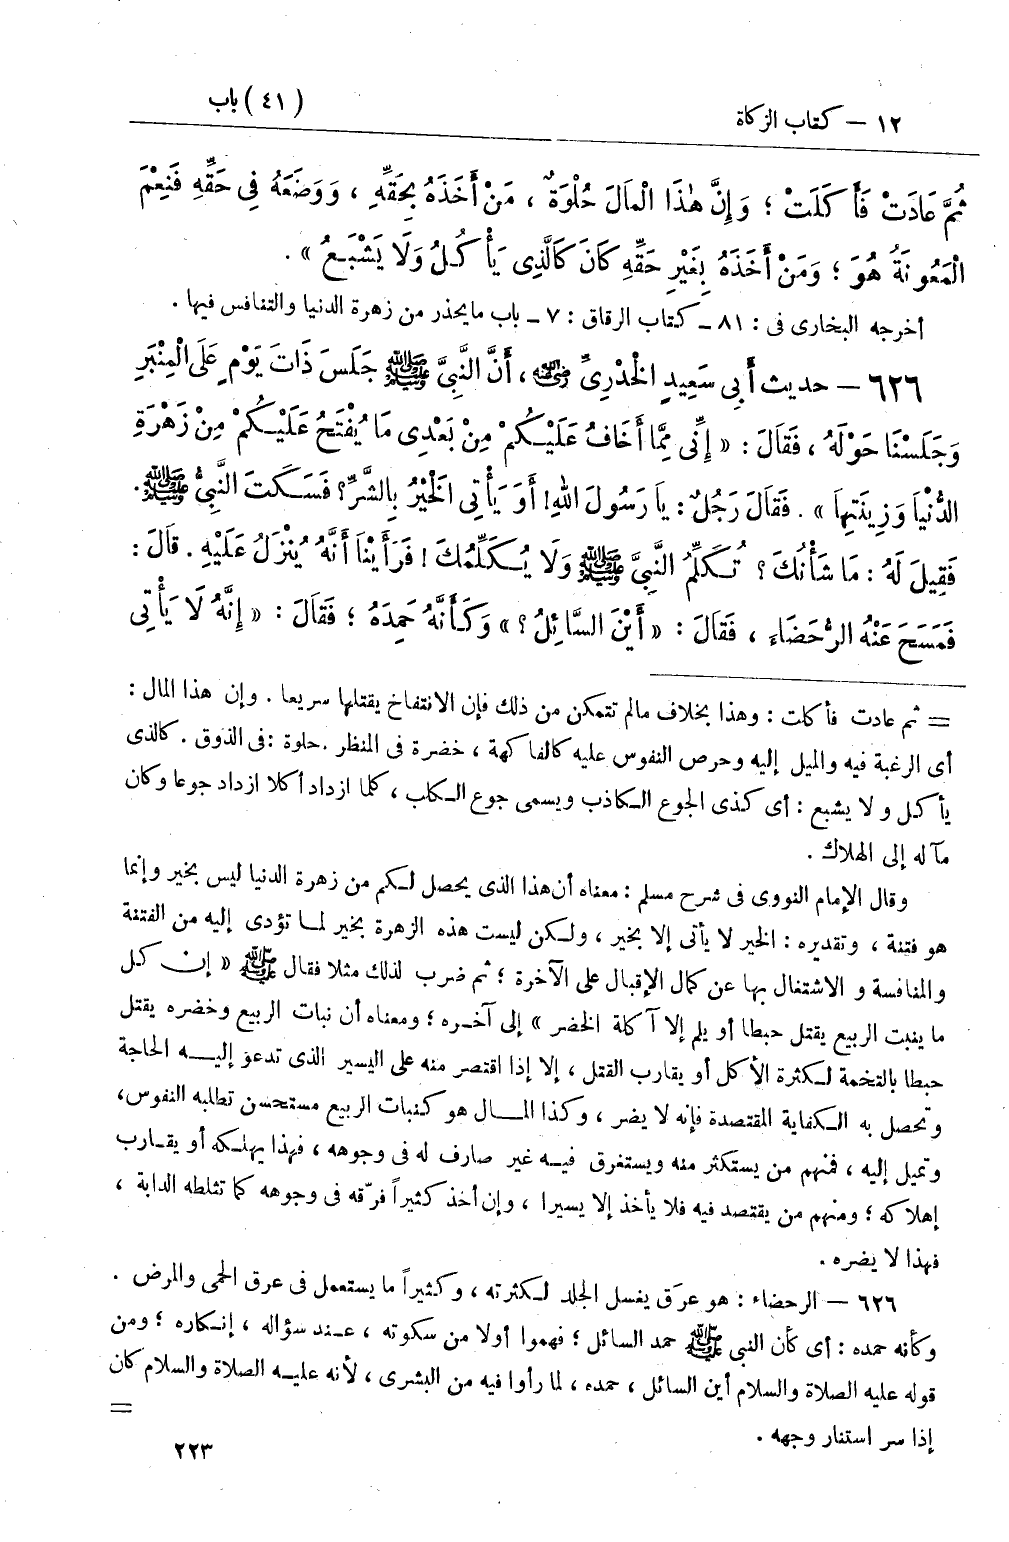 ١٢ — كتاب الزكاة (٤١) باب
ثُمَّ عَادَتْ فَأَكَلَتْ ؛ وَإِنَّ هٰذَا الْمَالَ حُلْوَةٌ ، مَنْ أَخَذَهُ بِحَقِّهِ ، وَوَضَعَهُ فِي حَقِّهِ فَنِعْمَ
الْمَعُونَةُ هُوَ ؛ وَمَنْ أَخَذَهُ بِغَيْرِ حَقِّهِ كَانَ كَالَّذِى يَأْكُلُ وَلَا يَشْبَعُ » .
أخرجه البخارى فى : ٨١ ــ كتاب الرقاق : ٧ ــ باب ما يحذر من زهرة الدنيا والتنافس فيها .
٦٢٦ — حديث أَبِي سَعِيدٍ الْخُدْرِىِّ رضي الله عنه ، أَنَّ النَّبِىَّ ﷺ جَلَسَ ذَاتَ يَوْمٍ عَلَى الْمِنْبَرِ
وَجَلَسْنَا حَوْلَهُ ، فَقَالَ : « إِنِّى مِمَّا أَخَافُ عَلَيْكُمْ مِنْ بَعْدِى مَا يُفْتَحُ عَلَيْكُمْ مِنْ زَهْرَةِ
الدُّنْيَا وَزِينَتِهَا » . فَقَالَ رَجُلٌ : يَا رَسُولَ اللهِ! أَوَ يَأْتِى الْخَيْرُ بِالشَّرِّ؟ فَسَكَتَ النَّبِىُّ ﷺ.
فَقِيلَ لَهُ : مَا شَأْنُكَ ؟ تُكَلِّمُ النَّبِىَّ ﷺ وَلَا يُكَلِّمُكَ ! فَرَأَيْنَا أَنَّهُ يُنْزَلُ عَلَيْهِ . قَالَ :
فَمَسَحَ عَنْهُ الرُّحَضَاءَ ، فَقَالَ : « أَيْنَ السَّائِلُ ؟ » وَكَأَنَّهُ حَمِدَهُ ؛ فَقَالَ : « إِنَّهُ لَا يَأْتِى
= ثم عادت فأكلت : وهذا بخلاف مالم تتمكن من ذلك فإن الانتفاخ يقتلها سريعا . وإن هذا المال :
أى الرغبة فيه والميل إليه وحرص النفوس عليه كالفاكهة ، خضرة فى المنظر .حلوة :فى الذوق . كالذى
يأكل ولا يشبع : أى كذى الجوع الكاذب ويسمى جوع الكلب ، كلما ازداد أكلا ازداد جوعا وكان
مآله إلى الهلاك .
وقال الإمام النووى فى شرح مسلم : معناه أن هذا الذى يحصل لكم من زهرة الدنيا ليس بخير وإنما
هو فتنة ، وتقديره : الخير لا يأتى إلا بخير ، ولكن ليست هذه الزهرة بخير لما تؤدى إليه من الفتنة
والمنافسة و الاشتغال بها عن كمال الإقبال على الآخرة ؛ ثم ضرب لذلك مثلا فقال ﷺ « إن كل
ما ينبت الربيع يقتل حبطا أو يلم إلا آكلة الخضر » إلى آخره ؛ ومعناه أن نبات الربيع وخضره يقتل
حبطا بالتخمة لكثرة الأكل أو يقارب القتل ، إلا إذا اقتصر منه على اليسير الذى تدعو إليه الحاجة
وتحصل به الكفاية المقتصدة فإنه لا يضر ، وكذا المال هو كنبات الربيع مستحسن تطلبه النفوس،
وتميل إليه ، فمنهم من يستكثر منه ويستغرق فيه غير صارف له فى وجوهه ، فهذا يهلكه أو يقارب
إهلاكه ؛ ومنهم من يقتصد فيه فلا يأخذ إلا يسيرا ، وإن أخذ كثيراً فرّقه فى وجوهه كما تثلطه الدابة ،
فهذا لا يضره .
٦٢٦ — الرحضاء : هو عرَق يغسل الجلد لكثرته ، وكثيراً ما يستعمل فى عرق الحمى والمرض .
وكأنه حمده : أى كأن النبى ﷺ حمد السائل ؛ فهموا أولا من سكوته ، عند سؤاله ، إنكاره ؛ ومن
قوله عليه الصلاة والسلام أين السائل ، حمده ، لما رأوا فيه من البشرى ، لأنه عليه الصلاة والسلام كان
إذا سر استنار وجهه .
=
٢٢٣